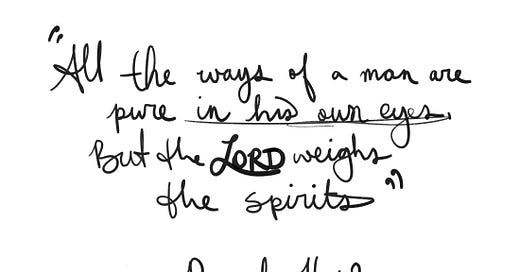 "All the ways of a man are
pure in his own eyes,
But the LORD weighs
the spirits"